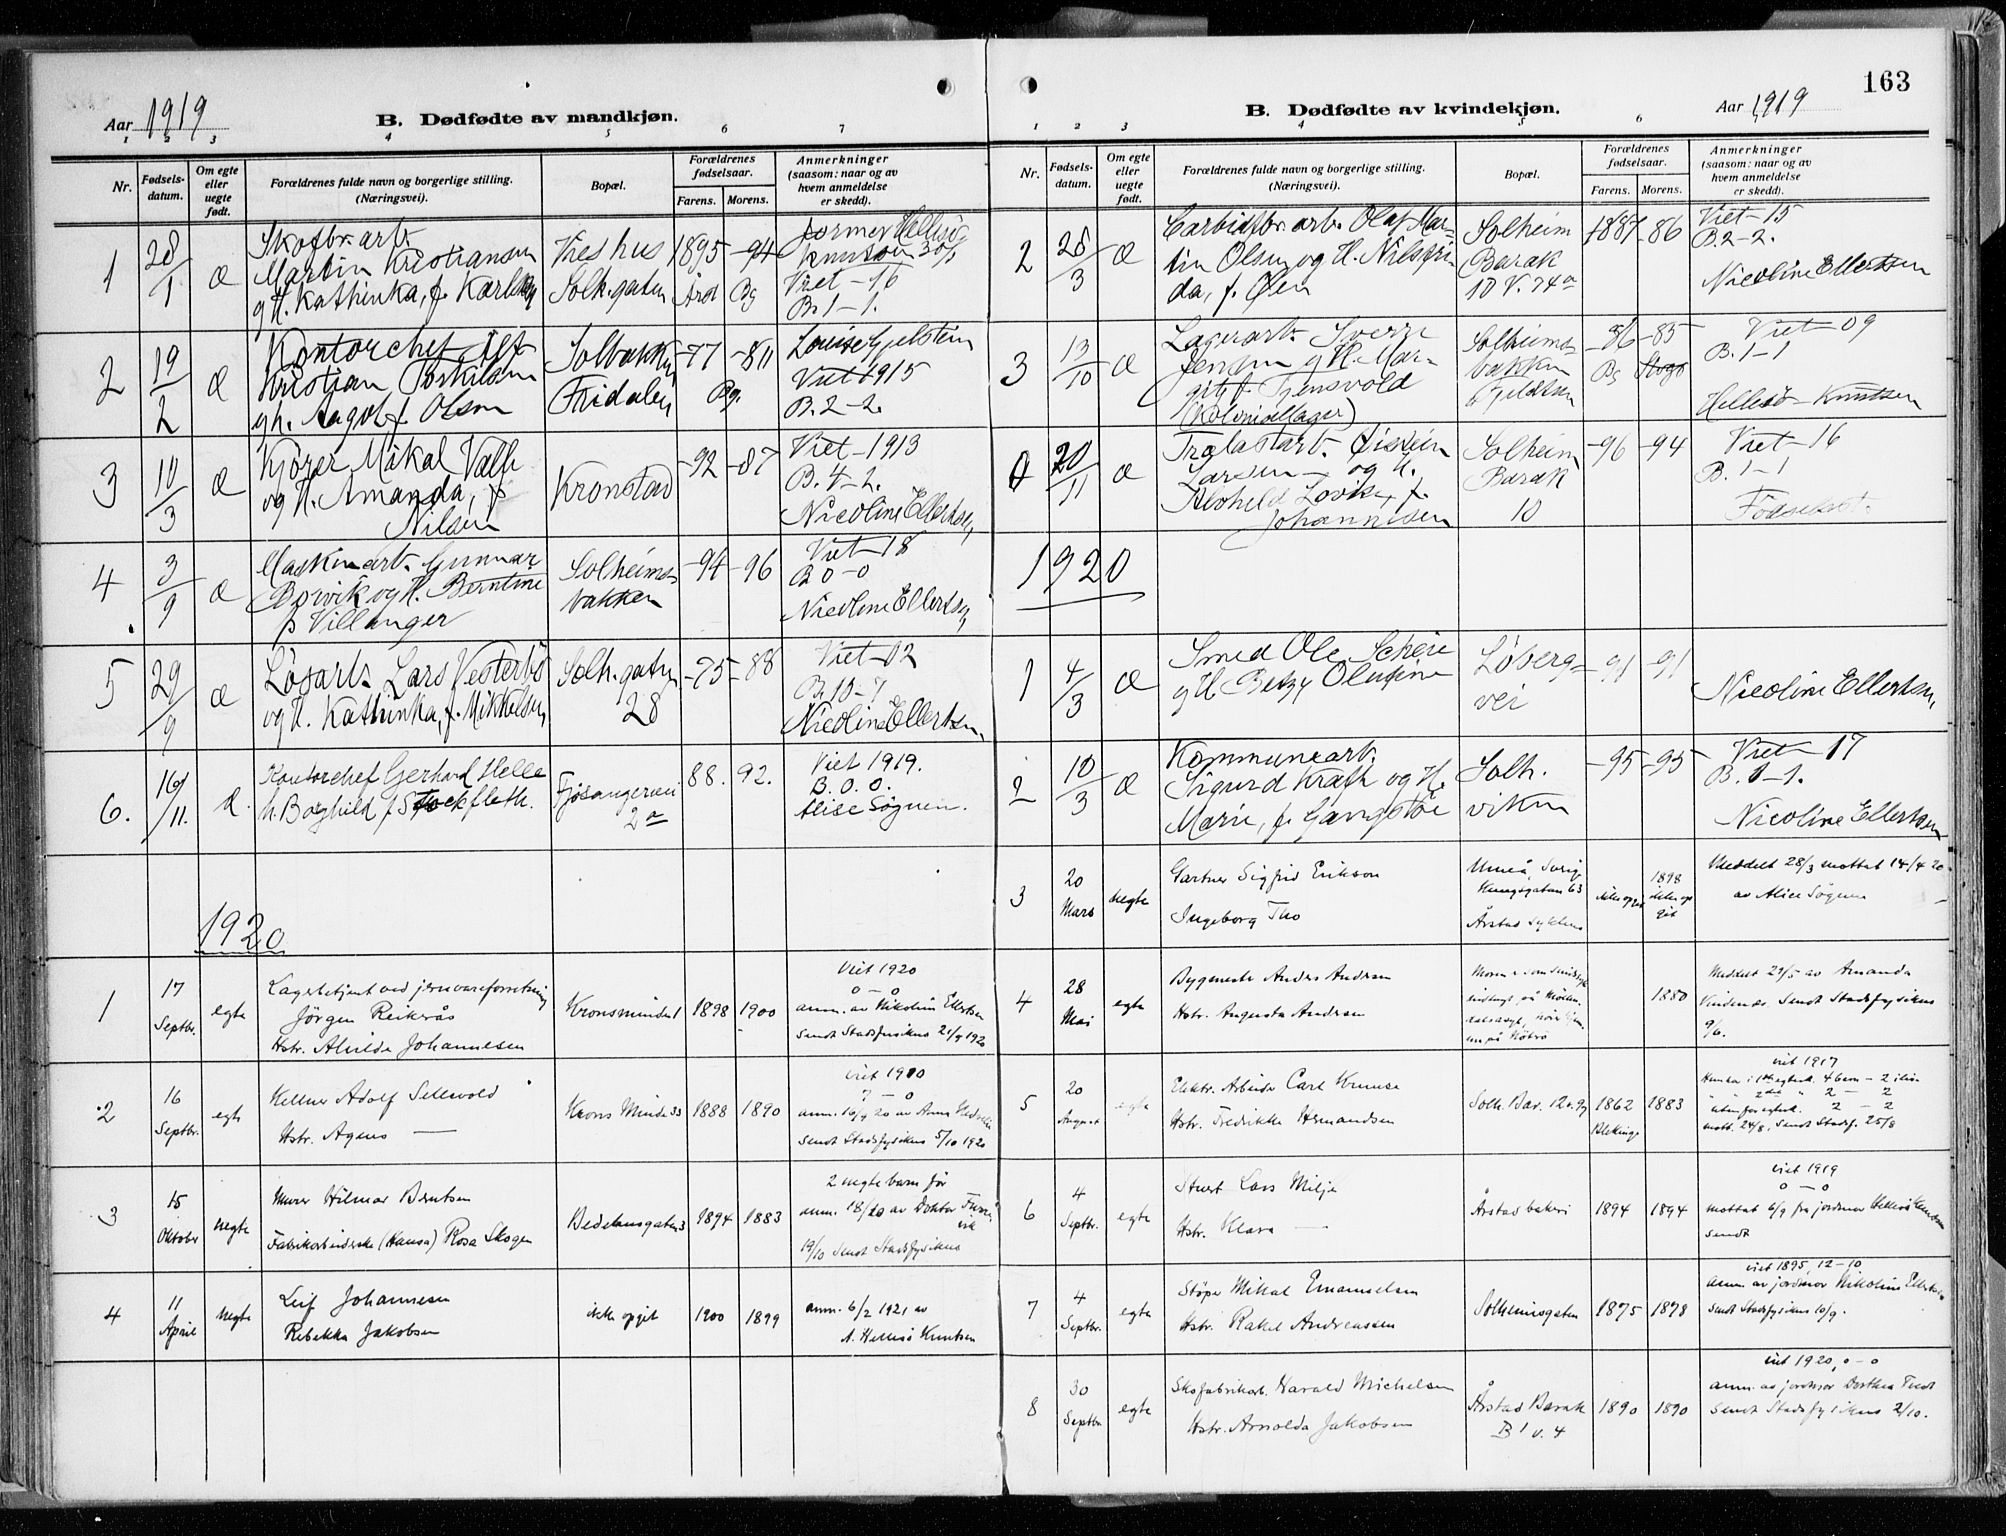 163
Aar 1919
B. Dødfødte av mandkjøn.
1 2 3 4 5 6 7
Nr.
Fødsels-
datum.
Om egte
eller
uegte
født.
Forældrenes fulde navn og borgerlige stilling.
(Næringsvei).
Bopæl.
Forældrenes
fødselsaar.
Farens. Morens.
Anmerkninger
(saasom: naar og av
hvem anmeldelse
er skedd).
1
28/1
Æ
Skofbr. arb.
Martin Kristiansen
og H. Kathinka, f. Karlsen
Vies hus
Solh.gaten
1895 -94
Bg
Jormor Hellisø
Knutsen 30/1
Viet -16
B. 1-1.
2
19/2
Æ
Kontorchef
Kristian Torkilsen
og h. Aagot f. Olsen
Solbakken
Fridalen
-77 -811
Bg.
Louise Gjelstein
Viet 1915
B. 2-2.
3
10/3
Æ
Kjører Mikal Valle
og H. Amanda, f.
Nilsen
Kronstad
-92 -87
Viet -1913
B. 4-2.
Nicoline Ellertsen,
4
3/9
Æ
Maskinarb. Gunnar
Børvik og H. Berntine
f. Villanger
Solheims-
bakken
-94 -96
Viet -18
B 0-0
Nicoline Ellertsen,
5
29/9
Æ
Løsarb. Lars Vesterbø
og H. Kathinka, f. Mikkelsen,
Solh.gaten
28
-75 -88
Viet -02
B. 10-7
Nicoline Ellertsen,
6.
16/11.
Æ.
Kontorchef Gerhard Helle
h. Borghild f. Stockfleth.
Fjøsangervei
2a
88. 92.
Viet 1919.
B. 0. 0.
Alise Søgnen.
1920
1
17
Septbr.
egte
Lagerbetjent ved jernvareforretning
Jörgen Reikerås
Hstr. Alvilde Johannesen
Kronsminde 1
1898 1900
Viet 1920
0 - 0
anm. av Nikoline Ellertsen
Sendt Stadsfysikus 21/9 1920
2
16
Septbr.
egte
Kellner Adolf Sellevold
Hstr. Agnes —
Krons Minde 33
1888 1890
viet 1910
? - 0
anm. 16/9 20 av Anna
Sendt Stadsfysikus 5/10 1920
3
15
Oktober
uegte
Murer Hilmar Berntsen
Fabrikarbeiderske (Hansa) Rosa Skogen
1894 1883
2 uegte barn før
anm. 18/20 av Doktor
19/10 Sendt Stadsfysikus
4
11
April
uegte
Leif Johannesen
Rebekka Jakobsen
ikke opgit
1900 1899
anm. 6/2 1921 av
A. Hellisø Knutsen
B. Dødfødte av kvindekjøn.
Aar 1919
1 2 3 4 5 6
Nr.
Fødsels-
datum.
Om egte
eller
uegte
født.
Forældrenes fulde navn og borgerlige stilling.
(Næringsvei).
Bopæl.
Forældrenes
fødselsaar.
Farens. Morens.
Anmerkninger
(saasom: naar og av
hvem anmeldelse
er skedd).
2
28/3
Æ
Carbidfbr. arb. Olaf Mar-
tin Olsen og H. Nilsfri-
da, f. Øen
Solheim
Barak
10 V. 74a
1887 -86
Viet -15
B. 2-2.
Nicoline Ellertsen
3
13/10
Æ
Lagerarb. Sverre
Jensen og H. Mar-
git f. Tjensvold
(Koloniallager)
Solheims-
bakken
-86 -85
Bg
Viet -09
B. 1-1
Hellisø-Knutsen
20/11
Æ
Trælastarb. Øistein
Larsen og H.
Alvhild Lovise, f.
Johannesen
Solheim
Barak
10
-96 -94
Viet -16
B. 1-1
1920
1
4/3
Æ
Smed Ole Scheie
og H Betzy Olufine
Løberg-
vei
-91 -91
Nicoline Ellertsen,
2
10/3
Æ
Kommunearb.
Sigurd Kraft og H.
Marie, f. Gangstøe
Solh.
viken
-95 -95
Viet -17
B. 1-1.
Nicoline Ellertsen
3
20
Mars
uegte
Gartner Sigfrid Erikson
Ingeborg Tho
Umeå, Sverige
Kungsgatan 63
Årstad sykehus
ikke opgit
1898
ikke op-
git
Meddelt 28/3 mottat 14/4 20
av Alice Søgnen
4
28
Mai
egte
Bygmester Anders Andersen
Hstr. Augusta Andersen
1880
Meddelt 29/5 av Amanda
Vindenes. Sendt Stadsfysikus
9/6.
5
20
August
egte
Elektr. Arbeider Carl Krunse
Hstr. Fredrikke Hermandsen
Solh. Bar. 12 v. 94
1862 1883
Blekinge
viet 1917
mott. 24/8, Sendt Stadsf. 25/8
6
4
Septbr.
egte
Stuert Lars Milje
Hstr. Klara —
Årstad bakeri
1894 1894
viet 1919
0 - 0
mottat 6/9 fra jordmor Hellisø Knutsen
Sendt
7
4
Septbr.
egte
Støper Mikal Emanuelsen
Hstr. Rakel Andreassen
Solheimsgaten
1875 1878
viet 1895, 12-10
anm. av jordmor Nikoline Ellertsen
Sendt Stadsfysikus 10/9.
8
30
Septbr.
egte
Skofabrikarb. Harald Michelsen
Hstr. Arnolda Jakobsen
Årstad Barak
B 1 v. 4
1890 1890
viet 1920, 0-0
anm. av jordmor Dorthea Tvedt
Sendt Stadsfysikus 2/10.